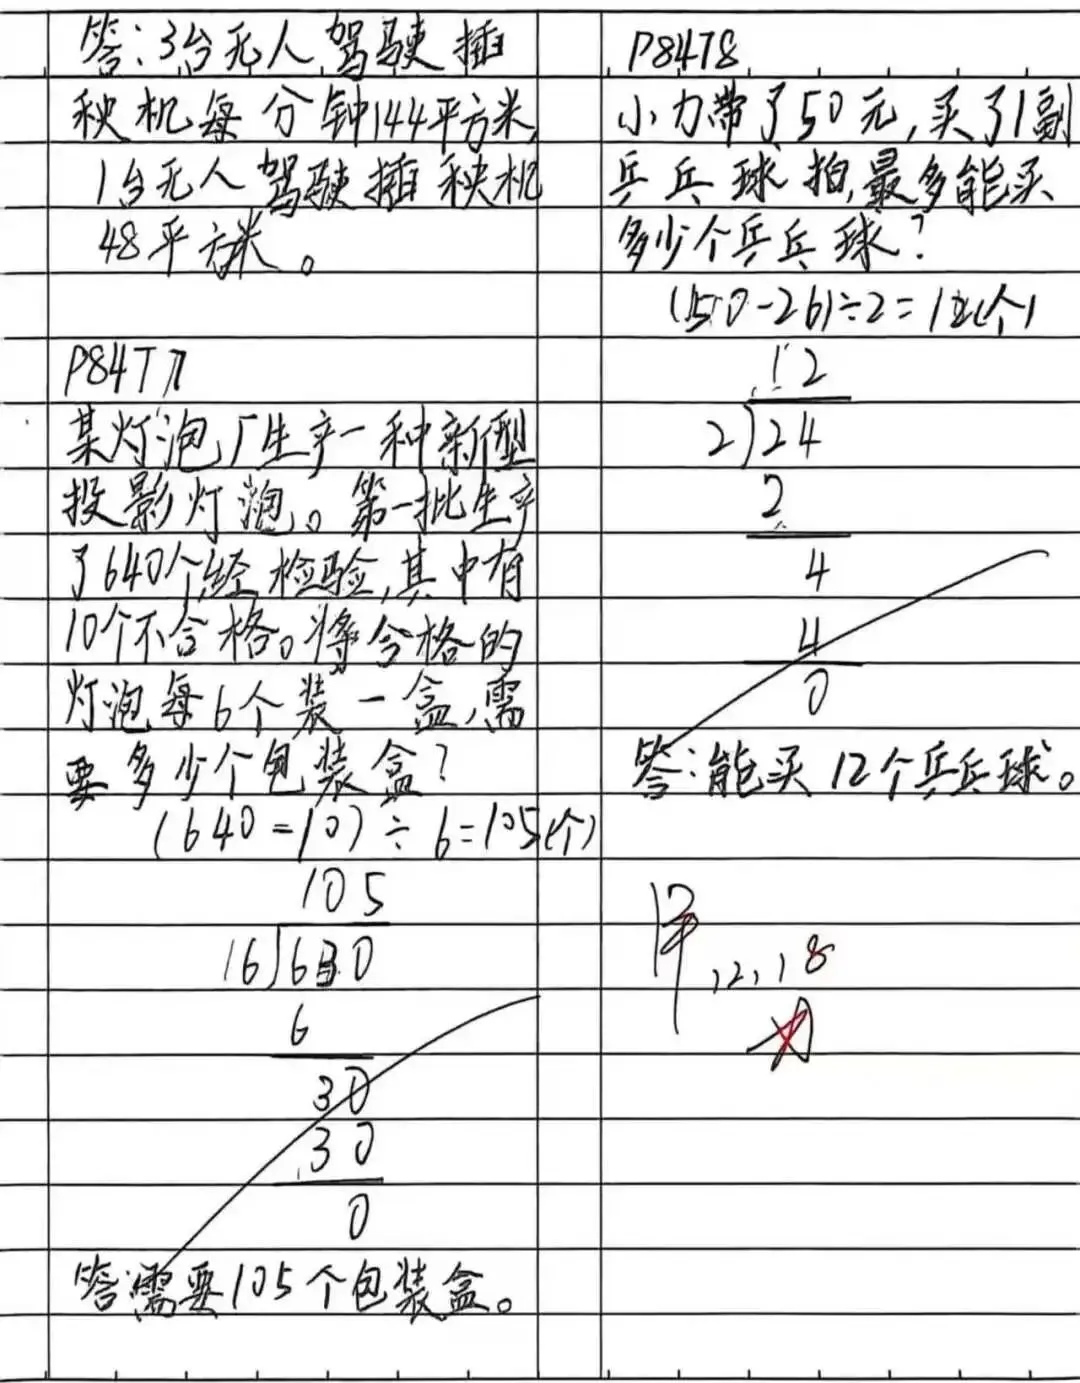 答:3台无人驾驶插
秧机每分钟144平方米,
1台无人驾驶插秧机
48平方米。
P84T7
某灯泡厂生产一种新型
投影灯泡。第一批生产
了640个,经检验,其中有
10个不合格。将合格的
灯泡每6个装一盒,需
要多少个包装盒?
(640-10)÷6=105(个)
105
16 630
6
30
30
0
答:需要105个包装盒。
P84T8
小力带了50元,买了1副
乒乓球拍,最多能买
多少个乒乓球?
(50-26)÷2=12(个)
12
2 24
2
4
4
0
答:能买12个乒乓球。
12,18